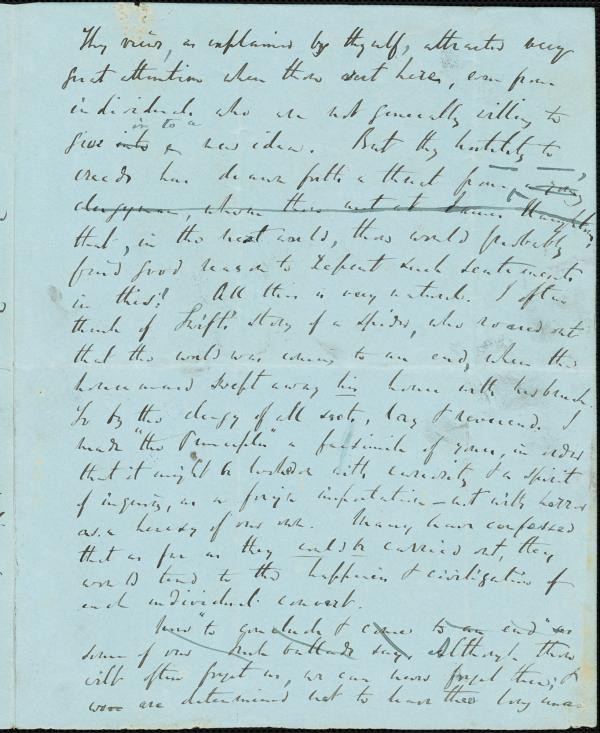 Thy views, as explained by thyself, attracted very
great attention when thou wert here, even from
individuals who are not generally willing to
give into in to a new idea. But thy hostility to
creeds has drawn forth a threat from a
clergyman, whom thou at
that, in the next world, thou would probably
find good reason to repent such sentiments
in this! All this is very natural. I often
think of Swift's story of a spider, who roared out
that the world was coming to an end, when the
housemaid swept away his house with her brush.
So by the clergy of all sects, lay & reverend. I
made "the Principles" a facsimile of yours, in order
that it might be looked on with curiosity & a spirit
of inquiry, as a foreign importation – not with horror
as a heresy of our own. Many have confessed
that as far as they could be carried out, they
would tend to the happiness & civilization of
each individual convert.
Now "to conclude & come to an end" as
some of our ballads say, Although thou
wilt often forget us, we can never forget thee; &
we are determined not to leave thee long